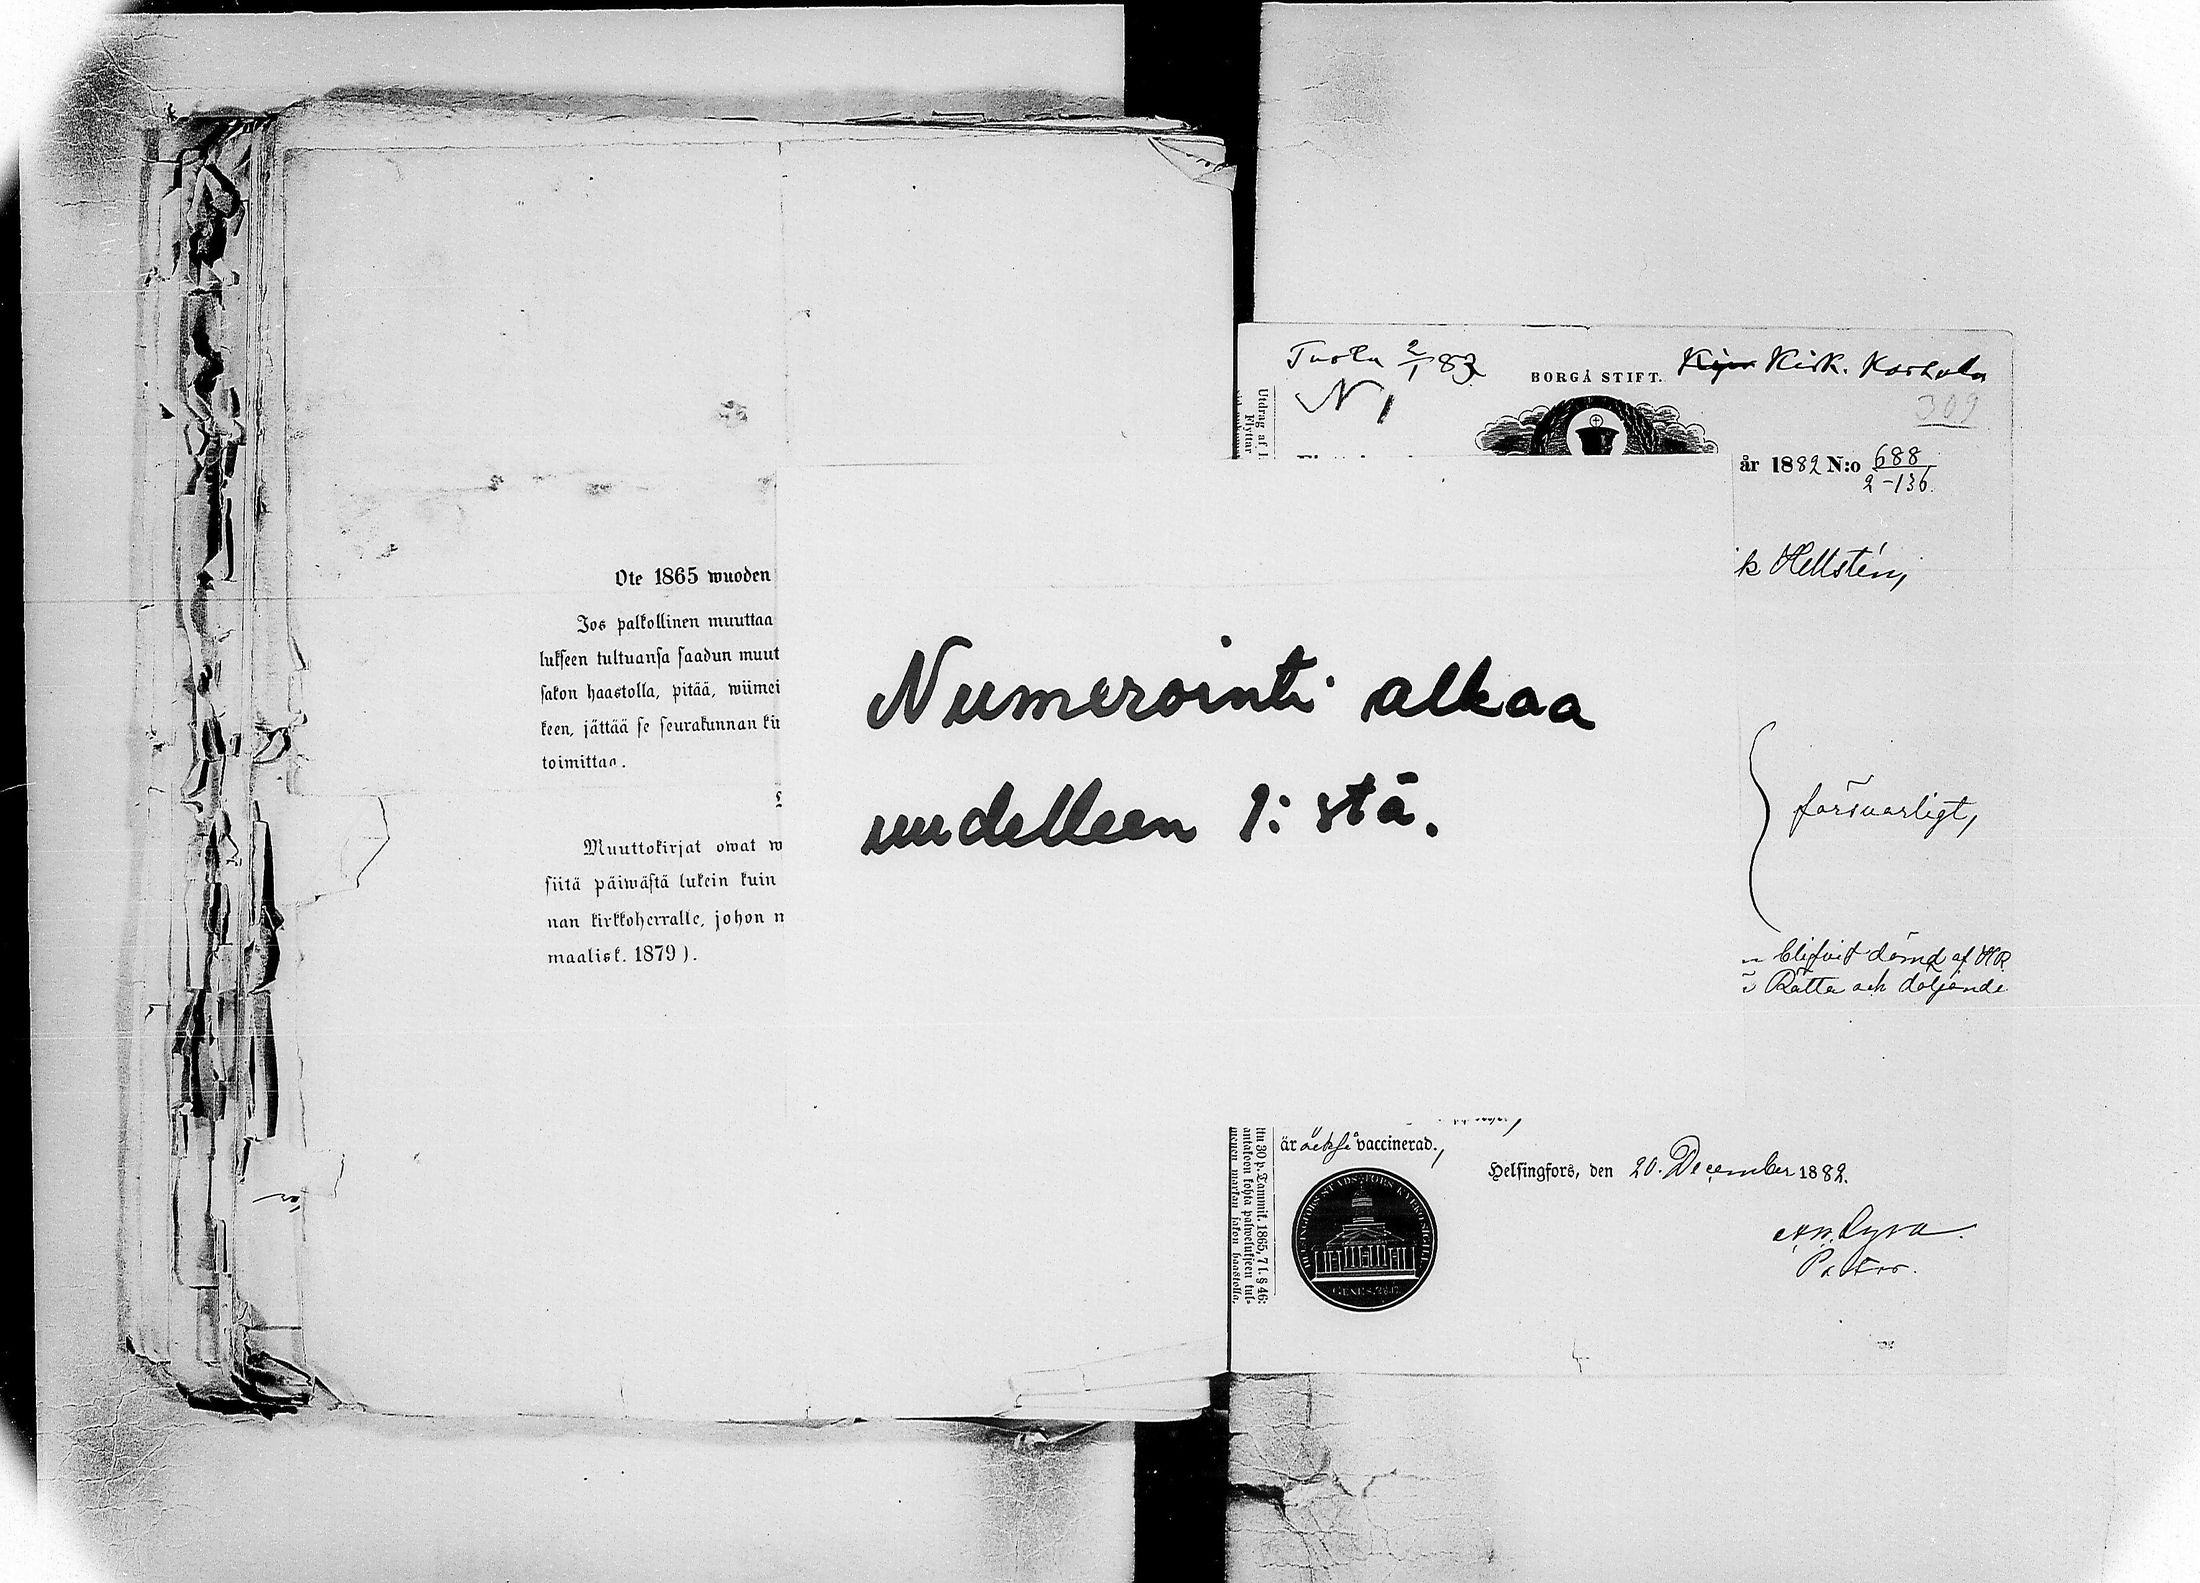 Ote 1865 wuoden
Jos palkollinen muuttaa
lukseen tultuansa saadun muut
sakon haastolla, pitää, wiimei
keen, jättää se seurakunnan kir
toimittaa.
Muuttokirjat owat w
siitä päiwästä lukein kuin
nan kirkkoherralle, johon m
maalisk. 1879).
Numerointi alkaa
uudelleen 1:stä.
Tuotu 2/1 83
N 1
BORGÅ STIFT.
Kirk.
309
år 1882 N:o 688
2-136.
k Hellstén,
försvarligt,
blifvit dömd af HR
Rätta och döljande
är också vaccinerad.,
Helsingfors, den 20. December 1882.
Utdrag af
Flyttar
ltu 30 p. Tammik. 1865, 7 l. § 46:
antakoon kohta palwelukseen tul-
menen markan sakon haastolla,